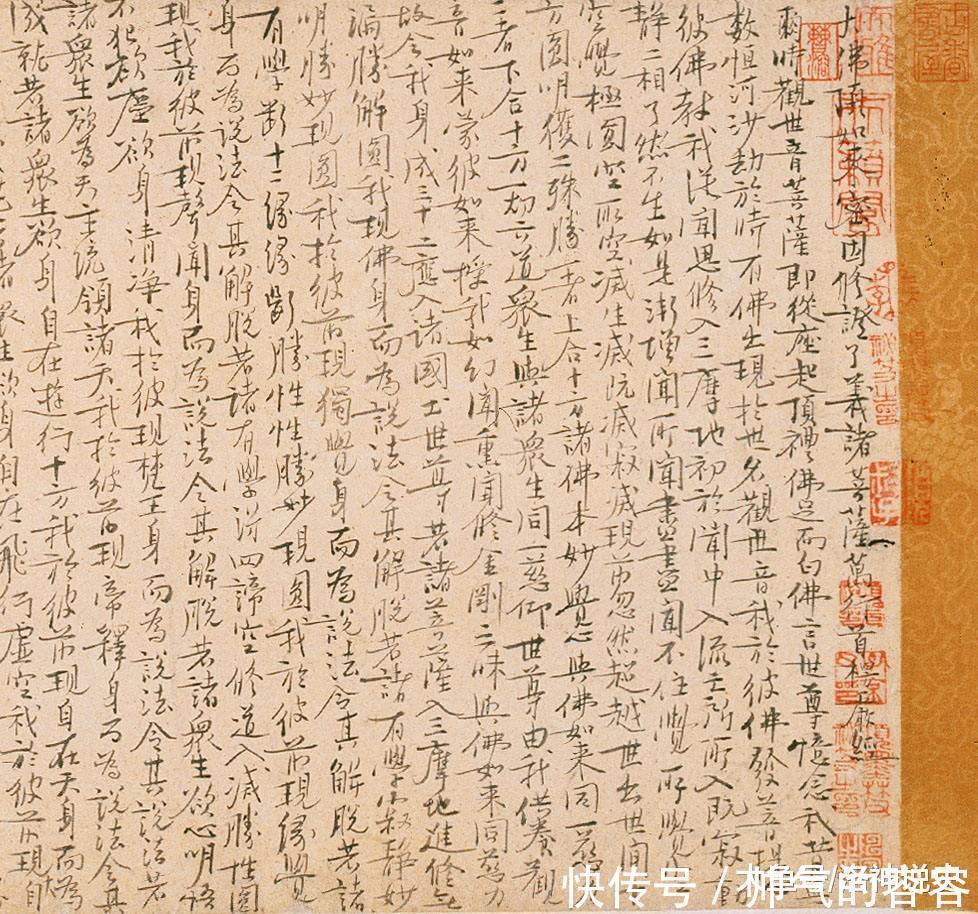 大佛頂如來密因修證了義諸菩薩萬行首楞嚴經
爾時觀世音菩薩即從座起頂禮佛足而白佛言世尊憶念我昔無
數恒河沙劫於時有佛出現於世名觀世音我於彼佛發菩提
彼佛教我從聞思修入三摩地初於聞中入流亡所所入既寂動
靜二相了然不生如是漸增聞所聞盡盡聞不住覺所覺
空覺極圓空所空滅生滅既滅寂滅現前忽然超越世出世間
方圓明獲二殊勝一者上合十方諸佛本妙覺心與佛如來同一慈
二者下合十方一切六道眾生與諸眾生同一慈仰世尊由我供養觀
音如來蒙彼如來授我如幻聞熏聞修金剛三昧與佛如來同慈力
故令我身成三十二應入諸國土世尊若諸菩薩入三摩地進修無
漏勝解圓我現佛身而為說法令其解脫若諸有學寂靜妙
明勝妙現圓我於彼前現獨覺身而為說法令其解脫若諸
有學斷十二緣緣斷勝性性勝妙現圓我於彼前現緣覺
身而為說法令其解脫若諸有學得四諦空修道入滅勝性圓
現我於彼前現聲聞身而為說法令其解脫若諸眾生欲心明悟
不犯欲塵欲身清淨我於彼現梵王身而為說法令其說法若
諸眾生欲為天主統領諸天我於彼前現帝釋身而為說法令其
成就若諸眾生欲身自在遊行十方我於彼前現自在天身而為
眾生欲身自在飛行虛空我於彼前現自
快传号 / 帅气的客客